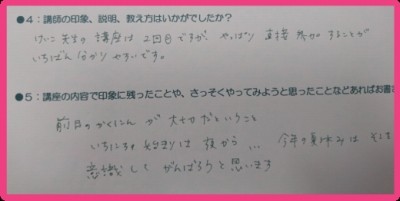 ●4：講師の印象、説明、教え方はいかがでしたか？
けいこ先生の講座は2回目ですが、やっぱり直接参加することが
いちばん分かりやすいです。
●5：講座の内容で印象に残ったことや、さっそくやってみようと思ったことなどあればお書
前日のかくにんが大切だということ
いちにちの始まりは夜から... 今年の夏休みはそこを
意識してがんばろうと思います